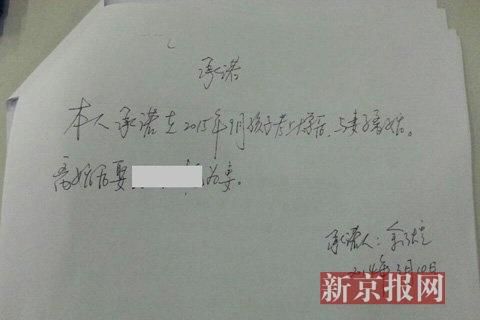 承诺
本人承诺在2015年9月孩子考上大学后，与妻子离婚。
离婚后要 为妻。
承诺人：
2014年3月10日
新京报网